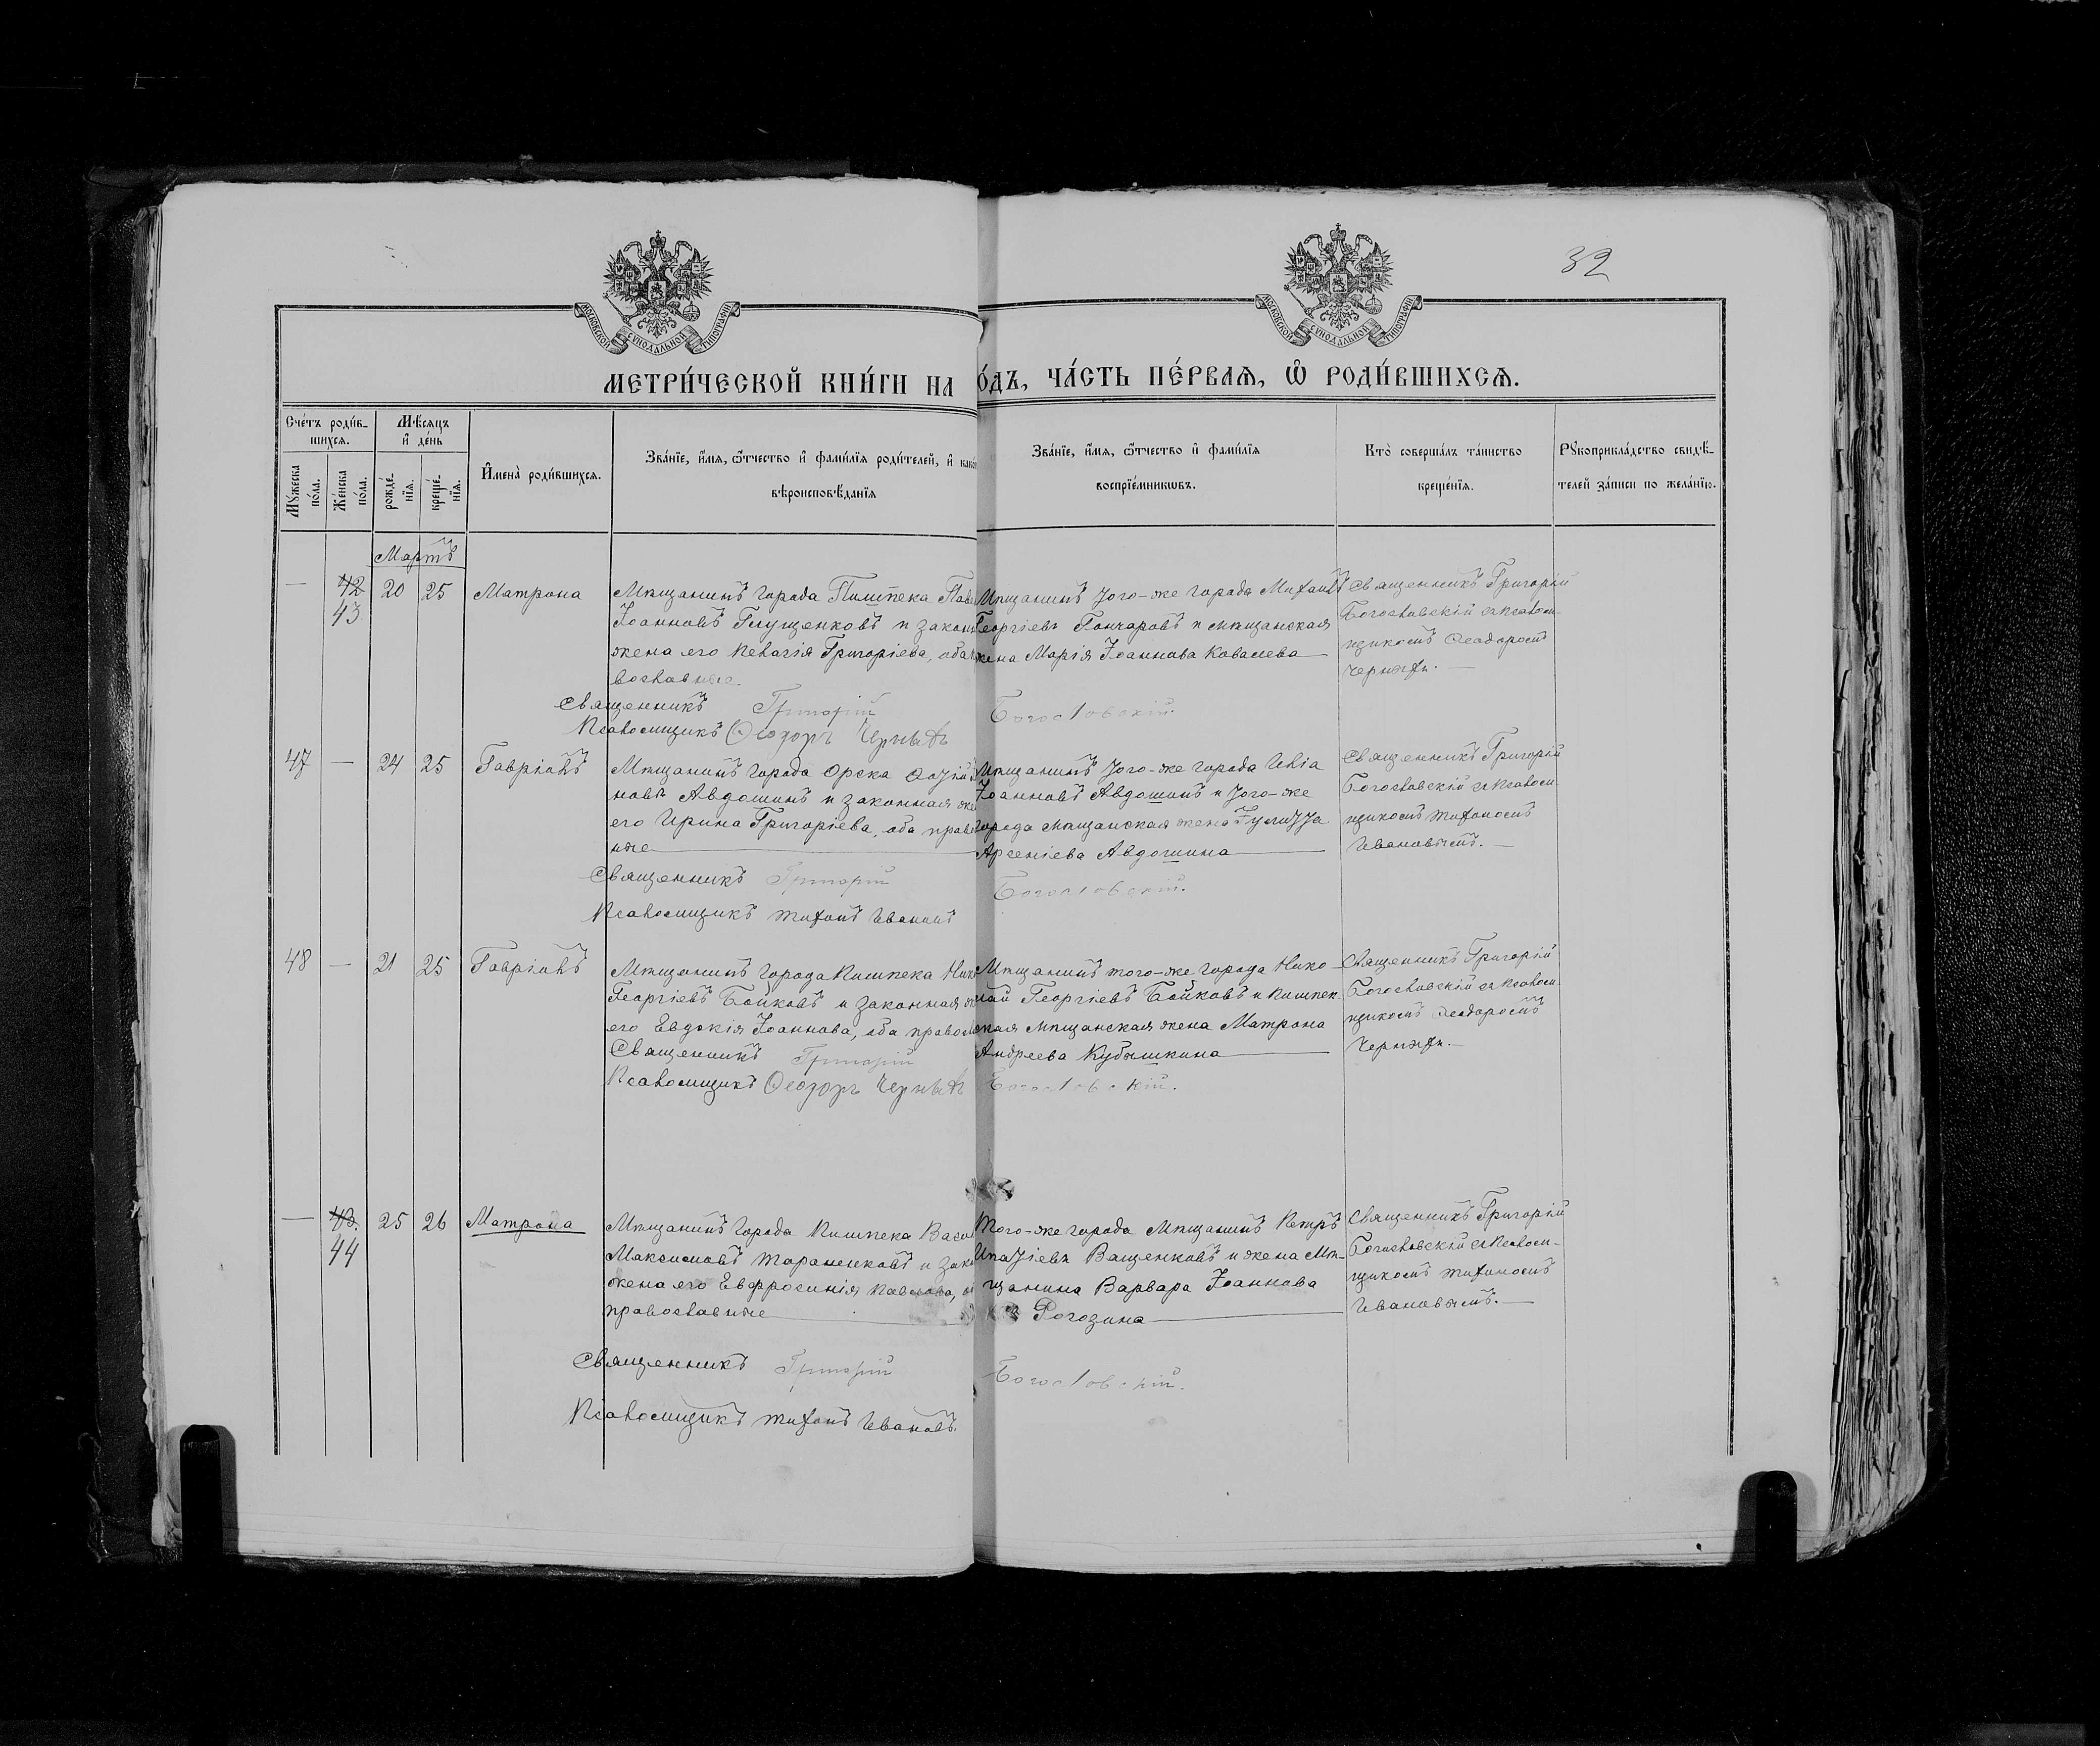 32
МОСКОВСКОЙ СѴНОДАЛЬНОЙ ТИПОГРАФІИ
МОСКОВСКОЙ СѴНОДАЛЬНОЙ ТИПОГРАФІИ
МЕТРИ́ЧЕСКОЙ КНИ́ГИ НА
О́ДЪ, ЧА́СТЬ ПЕ́РВАѦ, Ѡ РОДИ́ВШИХСѦ.
Сче́тъ роди́в-
шихсѧ.
Мѣ́сѧцъ
и҆ де́нь
Мꙋ́жеска
по́ла.
Же́нска
по́ла.
рожде́-
нїѧ.
креще́-
нїѧ.
И҆мена̀ роди́вшихсѧ.
Зва́нїе, и҆́мѧ, ѻ҆́тчество и҆ фами́лїѧ роди́телей, и҆ како
вѣроисповѣ́данїѧ
Зва́нїе, и҆́мѧ, ѻ҆́тчество и҆ фами́лїѧ
воспрїе́мникѡвъ.
Кто̀ соверша́лъ та́инство
креще́нїѧ.
Рꙋкоприкла́дство свидѣ́-
телей за́писи по жела́нїю.
Мартъ
— 42 43 20 25 Матрона
Мѣщанинъ города Пишпека Паве
Іоанновъ Глущенковъ и закон
жена его Пелагія Григоріева, оба
вославные.
Мѣщанинъ того-же города Михаилъ
Георгіевъ Гончаровъ и мѣщанская
жена Марія Іоаннова Ковалева
Священникъ Григорій
Богословскій съ псалом-
щикомъ Ѳеодоромъ
Чернѣхъ. —
Священникъ Григорій Богословскій.
Псаломщикъ Ѳеодоръ Черныхъ
47 — 24 25 Гавріилъ
Мѣщанинъ города Орска
новъ Авдошинъ и законная же
его Ирина Григоріева, оба право
ные
Мѣщанинъ того-же города Илія
Іоанновъ Авдошинъ и того-же
города мѣщанская жена Іулитта
Арсеніева Авдошина
Священникъ Григорій
Богословскій съ псалом-
щикомъ Тихономъ
Ивановымъ. —
Священникъ Григорій Богословскій.
Псаломщикъ Тихонъ Ивановъ
48 — 21 25 Гавріилъ
Мѣщанинъ города Пишпека Нико
Георгіевъ Бойковъ и законная ж
его Евдокія Іоаннова, оба правосл
Мѣщанинъ того-же города Нико-
лай Георгіевъ Бойковъ и Пишпек-
ская мѣщанская жена Матрона
Андреева Кубышкина
Священникъ Григорій
Богословскій съ псалом-
щикомъ Ѳеодоромъ
Чернѣхъ. —
Священникъ Григорій Богословскій.
Псаломщикъ Ѳеодоръ Черныхъ
— 43. 44 25 26 Матрона
Мѣщанинъ города Пишпека Васи
Максимовъ Тараненковъ и зако
жена его Евфросинія Павлова, о
православные
Того-же города мѣщанинъ Петръ
Ипатіевъ Ващенковъ и жена мѣ-
щанина Варвара Іоаннова
Рогозина
Священникъ Григорій
Богословскій съ псалом-
щикомъ Тихономъ
Ивановымъ. —
Священникъ Григорій Богословскій.
Псаломщикъ Тихонъ Ивановъ.